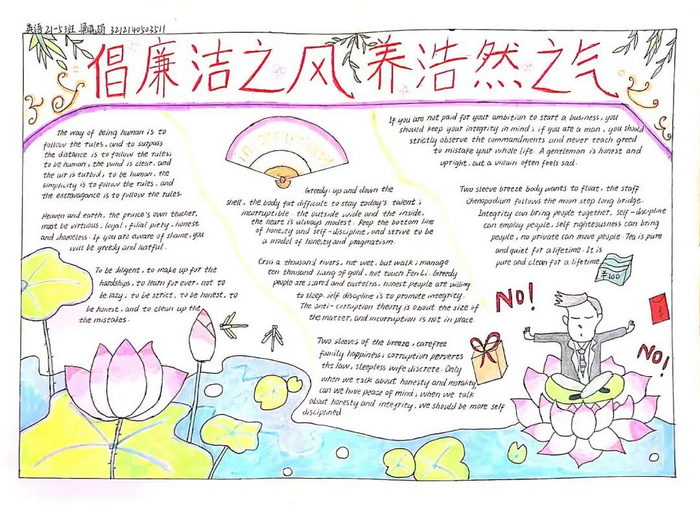 英语21-5班 3212140503511
倡廉洁之风 养浩然之气
The way of being human is to
follow the rules, and to surpass
the distance is to follow the rules;
to be human, the wind is clear, and
the air is turbid; to be human, the
simplicity is to follow the rules, and
the extravagance is to follow the rules.
Heaven and earth, the prince's own teacher,
must be virtuous, loyal, filial piety, honest
and shameless. If you are aware of shame, you
will be greedy and lustful.
To be diligent, to make up for the
hardships, to learn for ever, not to
be lazy, to be strict, to be honest, to
be honest, and to clean up the
the mistakes.
Greedy: up and down the
shell, the body fat difficult to stay today's talent;
incorruptible: the outside wide and the inside,
the heart is always modest. Keep the bottom line
of honesty and self-discipline, and strive to be
a model of honesty and pragmatism.
Cross a thousand rivers, not wet, but walk; manage
ten thousand liang of gold, not touch Fen Li. Greedy
people are scared and careless, honest people are willing
to sleep self discipline is to promote integrity.
The anti-corruption theory is about the size of
the matter, and incorruption is not in place.
Two sleeves of the breeze, carefree
family happiness; corruption perverts
the law, sleepless wife discrete. Only
when we talk about honesty and morality
can we have peace of mind; when we talk
about honesty and integrity, we should be more self
disciplined
If you are not paid for your ambition to start a business, you
should keep your integrity in mind; if you are a man, you should
strictly observe the commandments and never teach greed
to mistake your whole life. A gentleman is honest and
upright, but a villain often feels sad.
Two sleeve breeze body wants to float, the staff
Chenopodium follows the moon step long bridge.
Integrity can bring people together, self-discipline
can employ people, self righteousness can bring
people, no private can move people. Ten is pure
and quiet for a lifetime. It is
pure and clean for a lifetime.
¥100
NO!
NO!